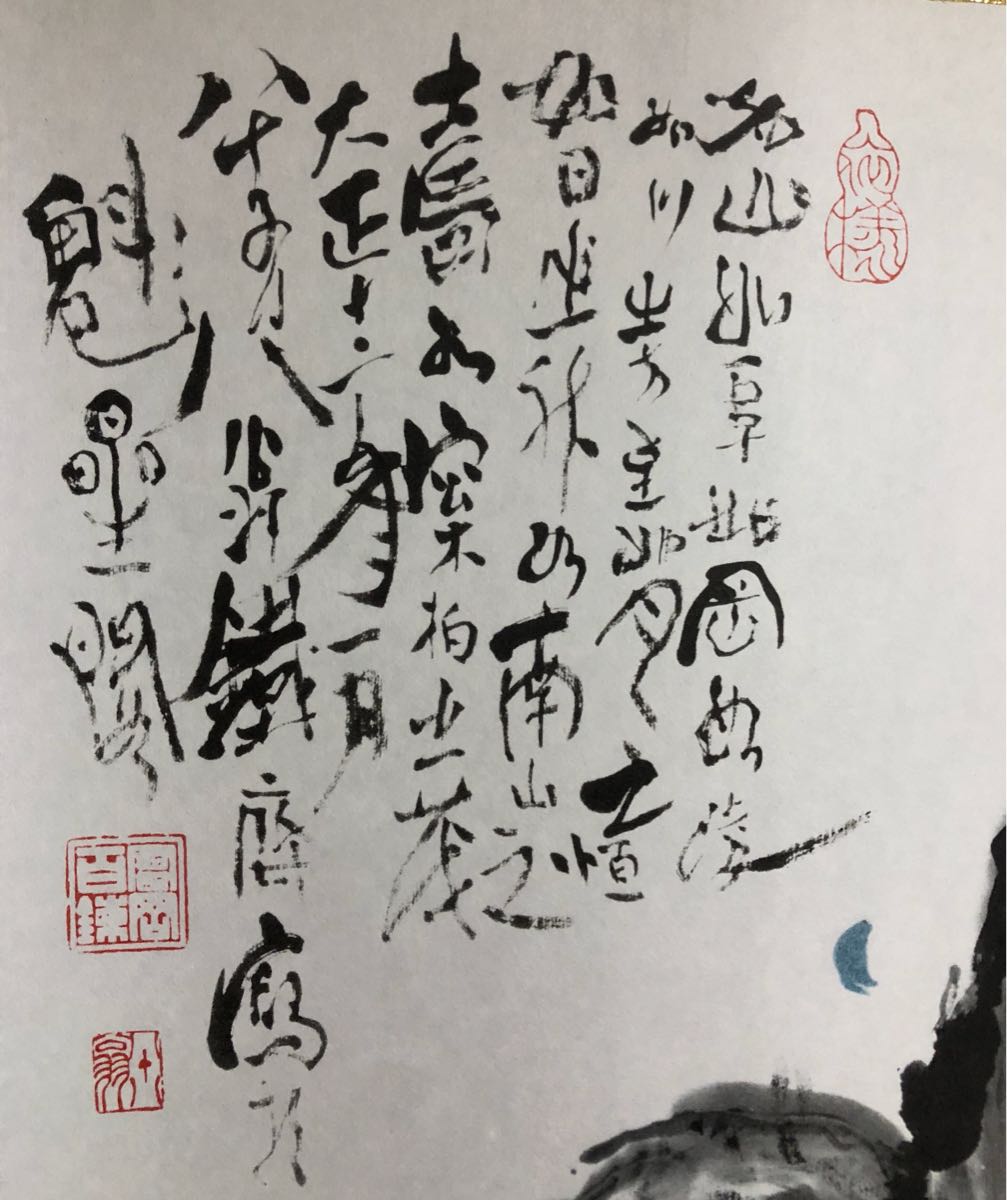 如山如阜如岡如陵
如川之方至如月之恒
如日之升如南山之
壽如松柏之茂
大正十二年一月
八十有八翁鐵齋寫於
魁星閣
富岡百錬